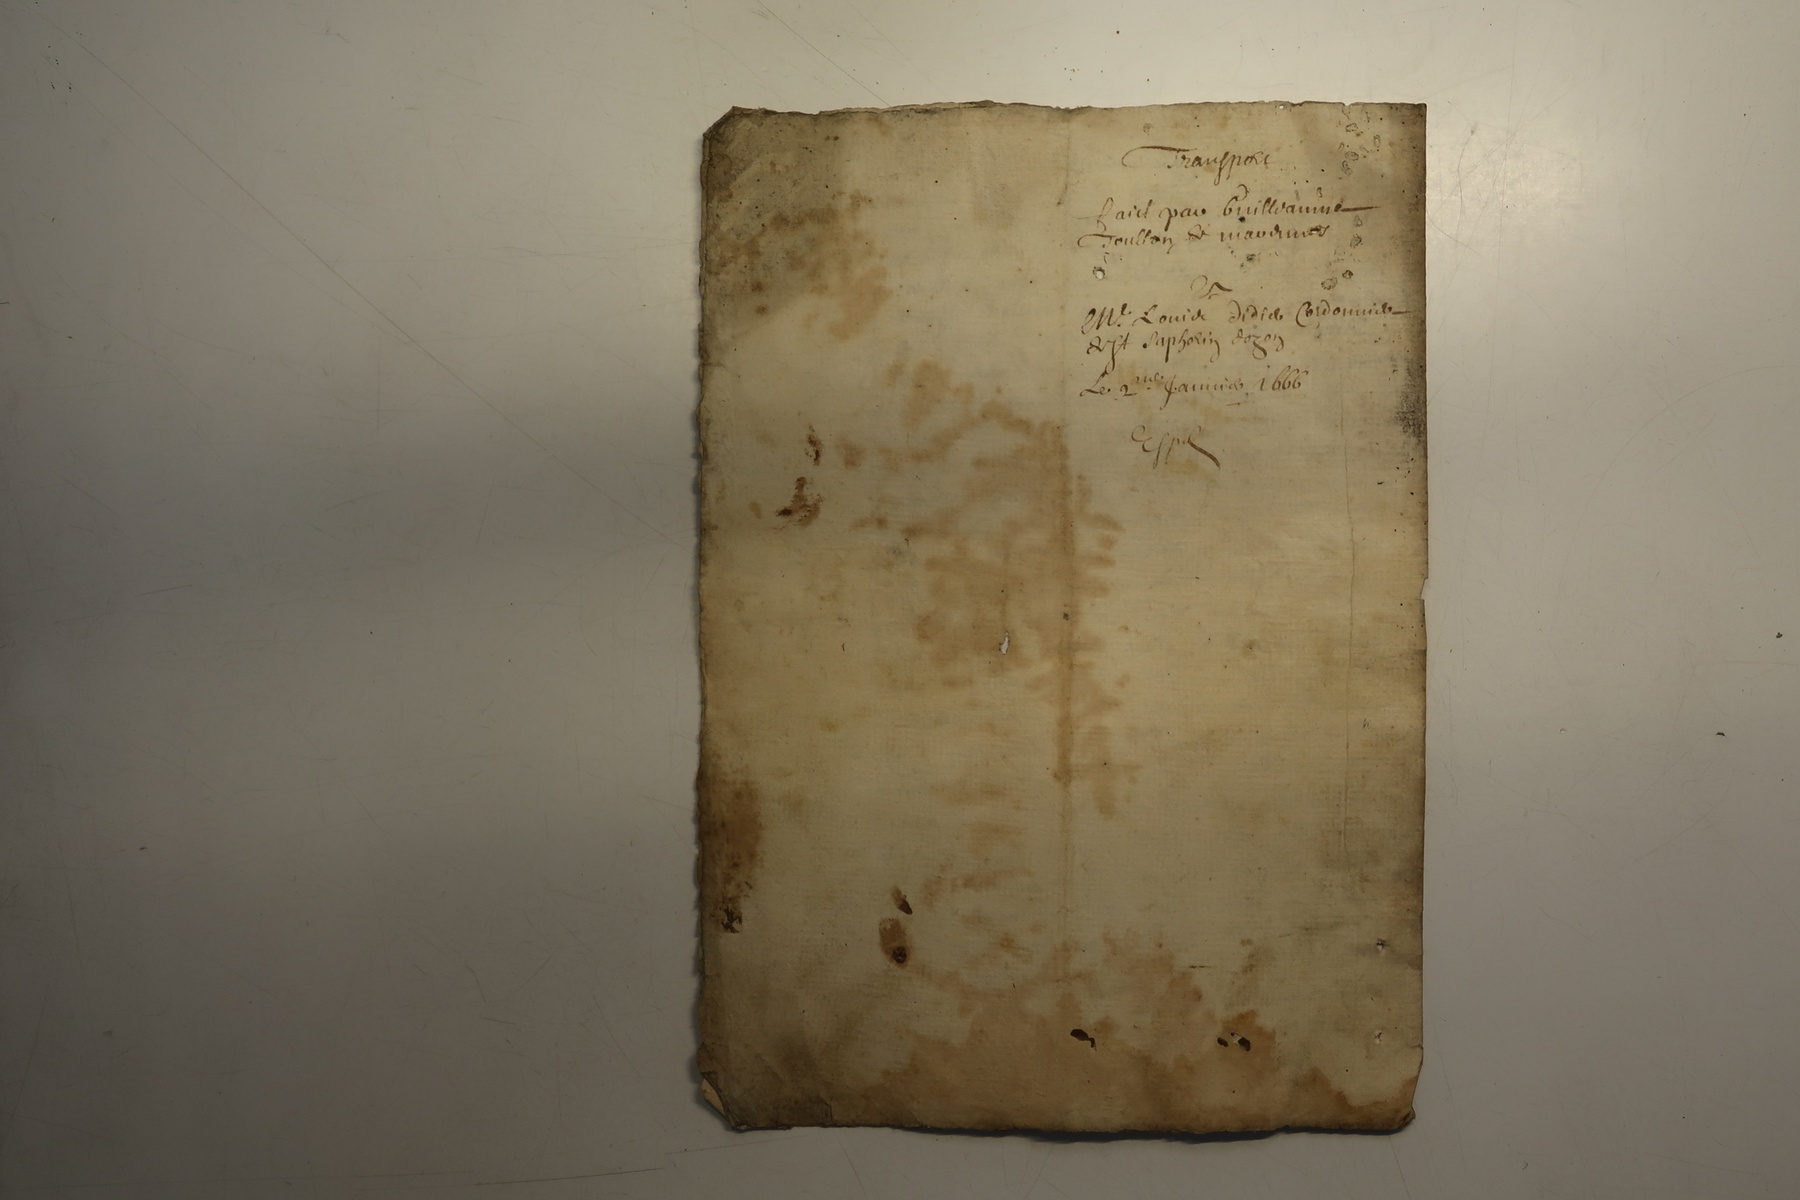 Transport
faict par Guilleaume
Toullon de
A
Mre. Louis Didier Cordonnier
de St Saphorin dozon
Le 2me Janvier 1666
Exped